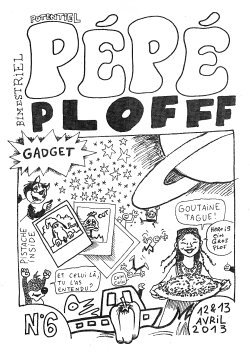 POTENTIEL
BIMESTRIEL
PÉPÉ
PLOFFF
GADGET
PISTACHE
INSIDE
GOUTAINE
TAGUE!
GROS
PLOF
ET CELUI LÀ,
TU L'AS
ENTENDU?
N°6
12&13
AVRIL
2013